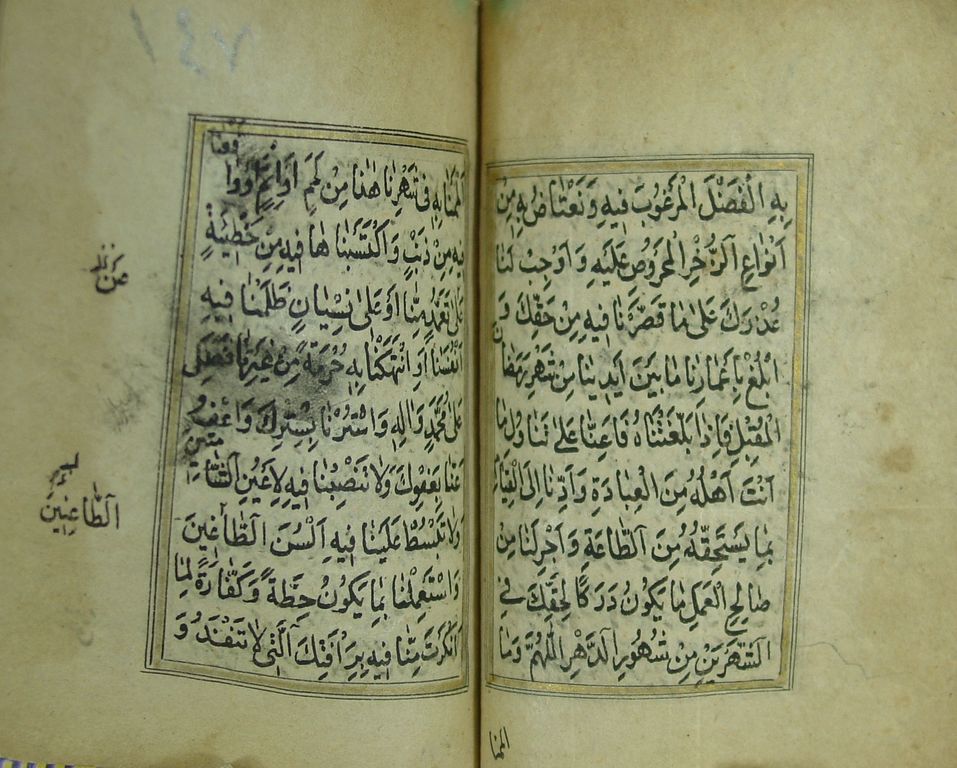 بِهِ الْفَضْلَ الْمَرْغُوبَ فِيهِ وَنَعْتَاضُ بِهِ مِنْ
اَنْوَاعِ الذُّخْرِ الْمَحْرُوصِ عَلَيْهِ وَاَوْجِبْ لَنَا
عُذْرَكَ عَلَىٰ مَا قَصَّرْنَا فِيهِ مِنْ حَقِّكَ وَ
ابْلُغْ بِاَعْمَارِنَا مَا بَيْنَ اَيْدِينَا مِنْ شَهْرِ رَمَضَانَ
الْمُقْبِلِ فَاِذَا بَلَّغْتَنَاهُ فَاَعِنَّا عَلَىٰ تَنَاوُلِ مَا
اَنْتَ اَهْلُهُ مِنَ الْعِبَادَةِ وَاَدِّنَا اِلَى الْقِيَامِ
بِمَا يَسْتَحِقُّهُ مِنَ الطَّاعَةِ وَاَجْرِ لَنَا مِنْ
صَالِحِ الْعَمَلِ مَا يَكُونُ دَرَكًا لِحَقِّكَ فِي
الشَّهْرَيْنِ مِنْ شُهُورِ الدَّهْرِ اللّٰهُمَّ وَمَا
المنا
اَلْمَمْنَا بِهِ فِي شَهْرِنَا هٰذَا مِنْ لَمَمٍ اَوْ اِثْمٍ اَوْ وَاقَعْنَا
فِيهِ مِنْ ذَنْبٍ وَاكْتَسَبْنَا فِيهِ مِنْ خَطِيئَةٍ
عَلَىٰ تَعَمُّدٍ مِنَّا اَوْ عَلَىٰ نِسْيَانٍ ظَلَمْنَا فِيهِ
اَنْفُسَنَا اَوِ انْتَهَكْنَا بِهِ حُرْمَةً مِنْ غَيْرِنَا فَصَلِّ
عَلَىٰ مُحَمَّدٍ وَاٰلِهِ وَاسْتُرْنَا بِسِتْرِكَ وَاعْفُ
عَنَّا بِعَفْوِكَ وَلَا تَنْصِبْنَا فِيهِ لِاَعْيُنِ الشَّامِتِينَ
وَلَا تَبْسُطْ عَلَيْنَا فِيهِ اَلْسُنَ الطَّاغِينَ
وَاسْتَعْمِلْنَا بِمَا يَكُونُ حِطَّةً وَكَفَّارَةً لِمَا
اَنْكَرْتَ مِنَّا فِيهِ بِرَاْفَتِكَ الَّتِي لَا تَنْفَدُ وَ
الطَّاعِنِينَ